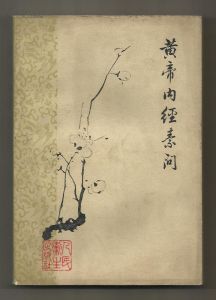 黄帝内經素问
人民衛生出版社